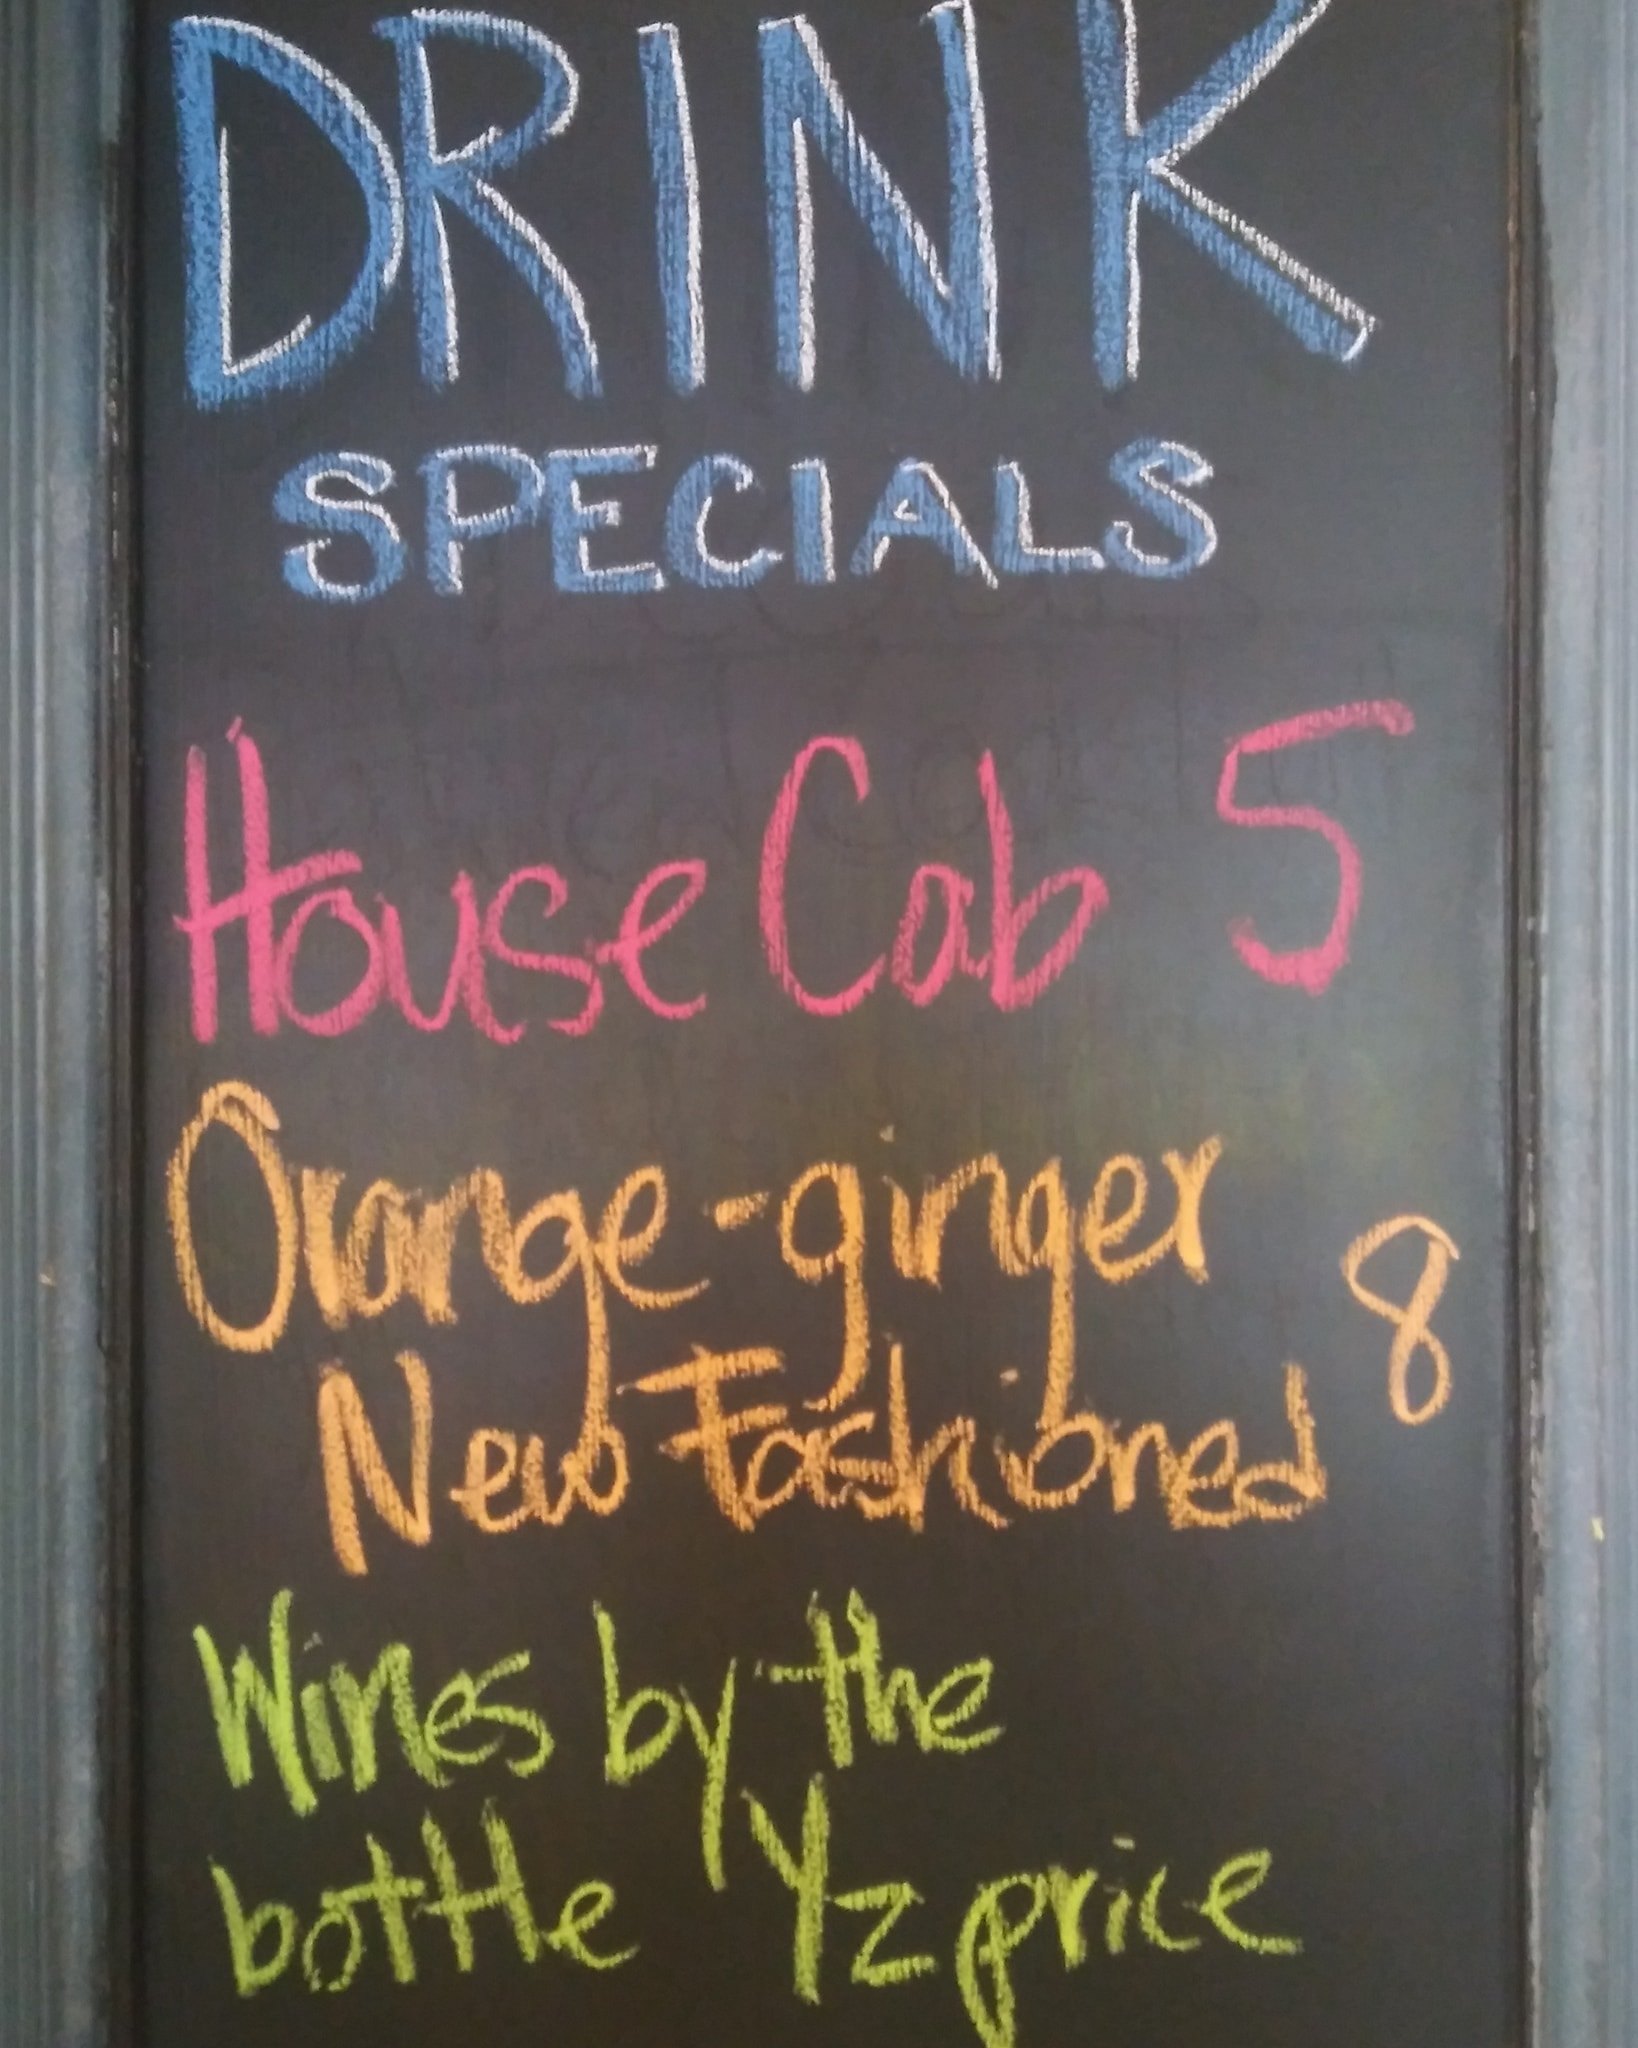 DRINK
SPECIALS
House Cab 5
Orange-ginger 8
New Fashioned
Wines by the
bottle 1/2 price